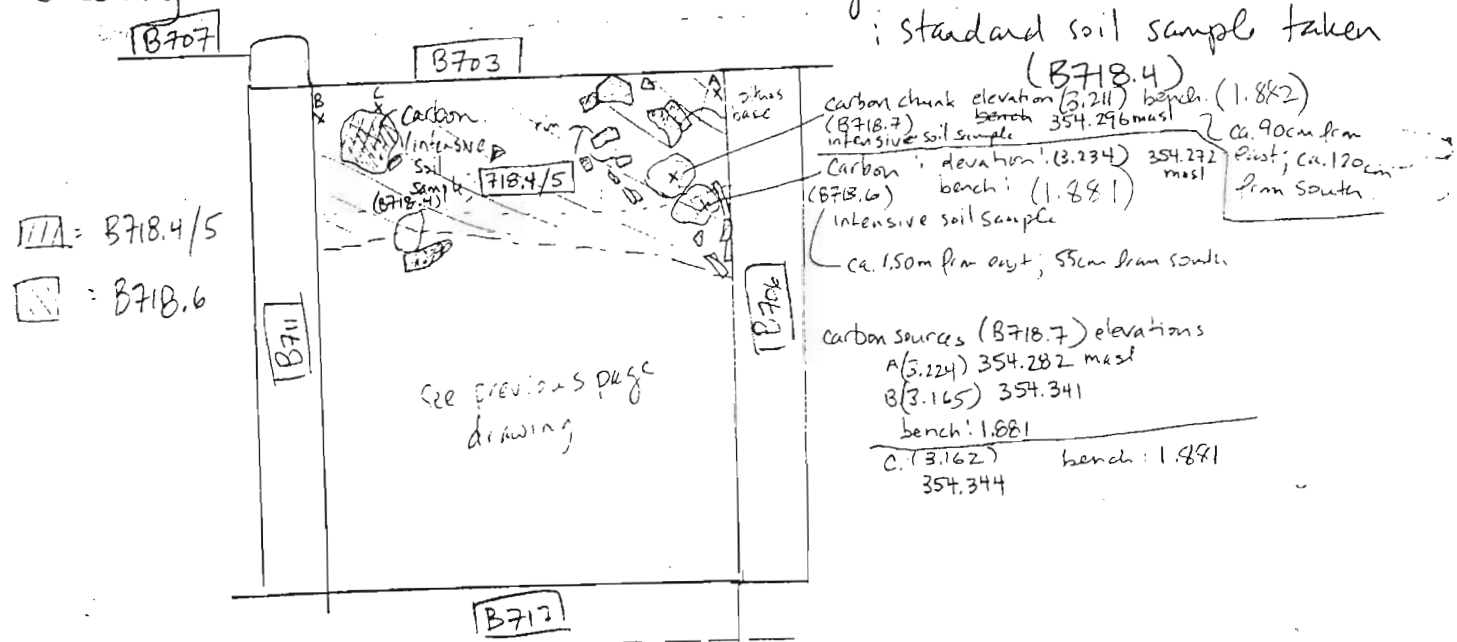 : standard soil sample taken
(B718.4)
B707
B703
B
C
A
carbon
intensive
soil
sample
(B718.4)
718.4/5
pithos
base
carbon chunk elevation (3.211) bench. (1.882)
(B718.7) bench 354.296masl
intensive soil sample
ca. 90cm from
east; ca. 120cm
from south
Carbon : elevation: (3.234) 354.272
masl
(B718.6) bench: (1.881)
intensive soil sample
ca. 1.50m from east; 55cm from south
= B718.4/5
= B718.6
B711
B706
carbon sources (B718.7) elevations
A (3.224) 354.282 masl
B (3.165) 354.341
bench: 1.881
C. (3.162) bench: 1.881
354.344
See previous page
drawing